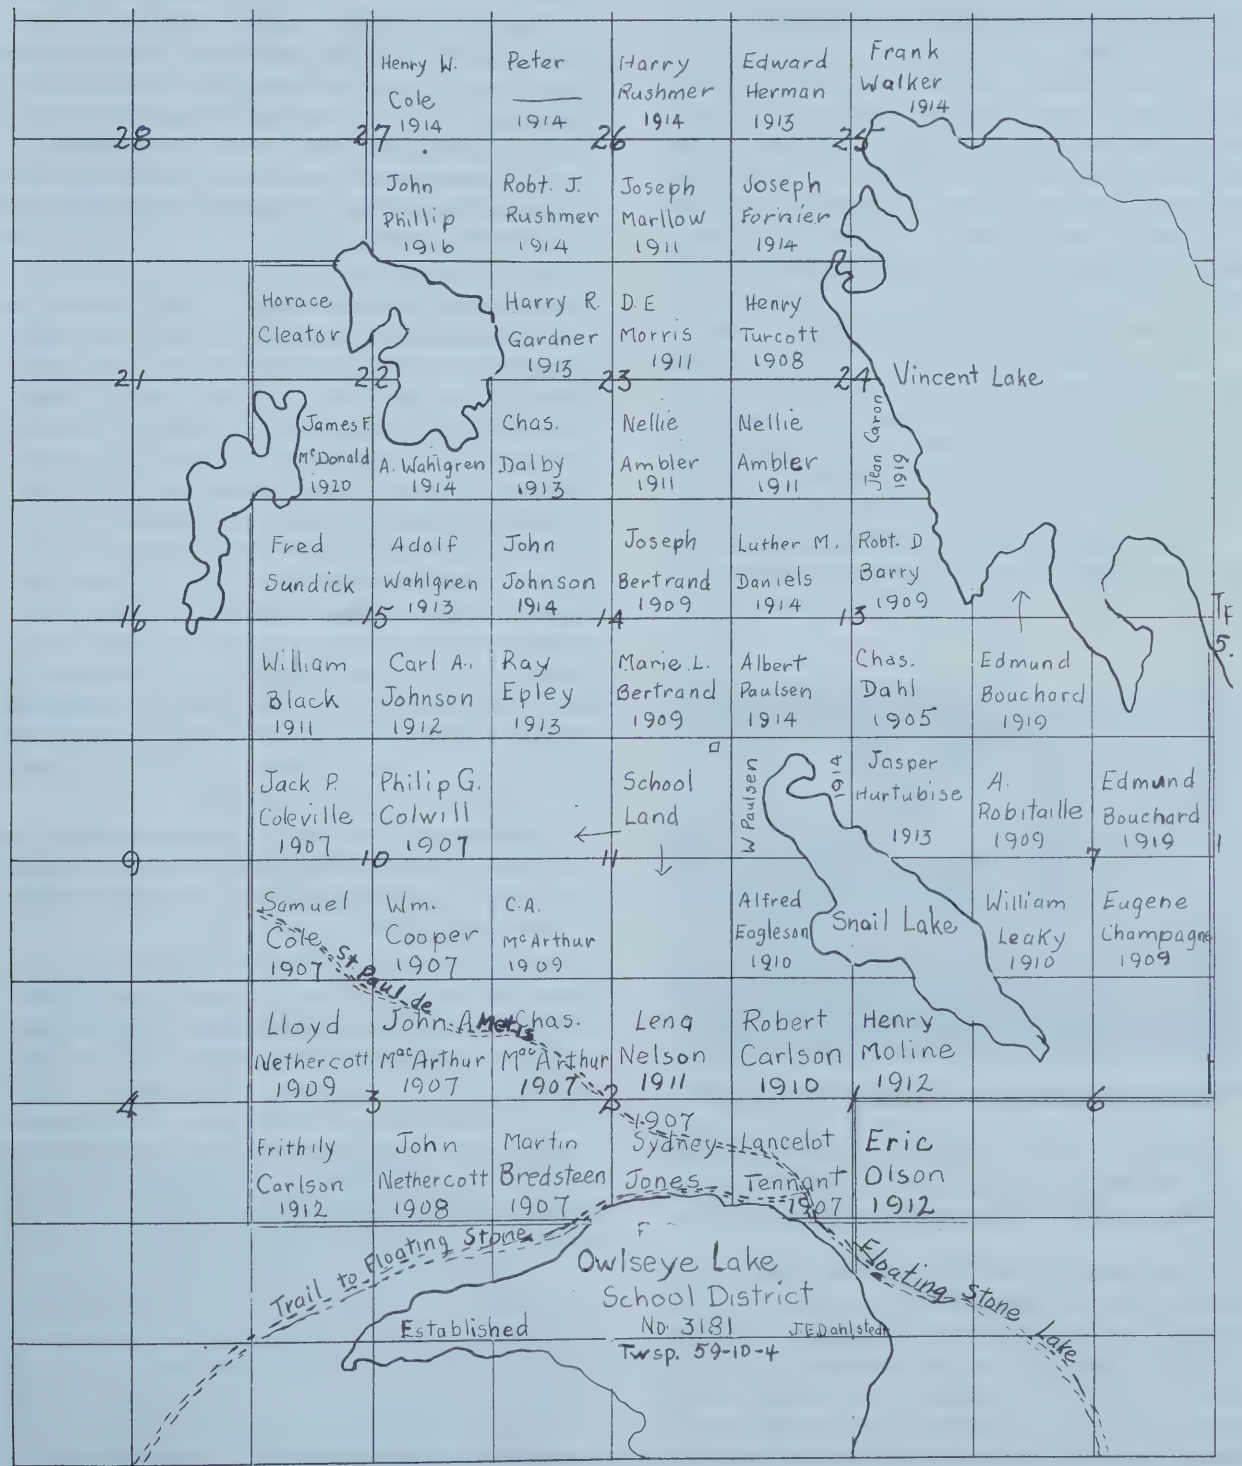 Henry W.
Cole
1914
Peter
1914
Harry
Rushmer
1914
Edward
Herman
1913
Frank
Walker
1914
28
27
26
25
John
Phillip
1916
Robt. J.
Rushmer
1914
Joseph
Marllow
1911
Joseph
Fornier
1914
Horace
Cleator
Harry R.
Gardner
1913
D. E
Morris
1911
Henry
Turcott
1908
21
22
23
24
Vincent Lake
James F.
McDonald
1920
A. Wahlgren
1914
Chas.
Dalby
1913
Nellie
Ambler
1911
Nellie
Ambler
1911
Jean Caron
1919
Fred
Sundick
Adolf
Wahlgren
1913
John
Johnson
1914
Joseph
Bertrand
1909
Luther M.
Daniels
1914
Robt. D
Barry
1909
16
15
14
13
William
Black
1911
Carl A.
Johnson
1912
Ray
Epley
1913
Marie L.
Bertrand
1909
Albert
Paulsen
1914
Chas.
Dahl
1905
Edmund
Bouchard
1919
Jack P.
Coleville
1907
Philip G.
Colwill
1907
School
Land
W Paulsen
1914
Jasper
Hurtubise
1913
A.
Robitaille
1909
Edmund
Bouchard
1919
9
10
11
7
Samuel
Cole
1907
Wm.
Cooper
1907
C.A.
McArthur
1909
Alfred
Eagleson
1910
Snail Lake
William
Leaky
1910
Eugene
Champagne
1909
St. Paul de
Metis
Lloyd
Nethercott
1909
John A.
MacArthur
1907
Chas.
MacArthur
1907
Lena
Nelson
1911
Robert
Carlson
1910
Henry
Moline
1912
4
3
2
1
6
Frithily
Carlson
1912
John
Nethercott
1908
Martin
Bredsteen
1907
1907
Sydney
Jones
Lancelot
Tennant
1907
Eric
Olson
1912
Trail to Floating Stone
Floating Stone Lake
Owlseye Lake
School District
No. 3181
Established
J.E Dahlstedt
Twsp. 59-10-4